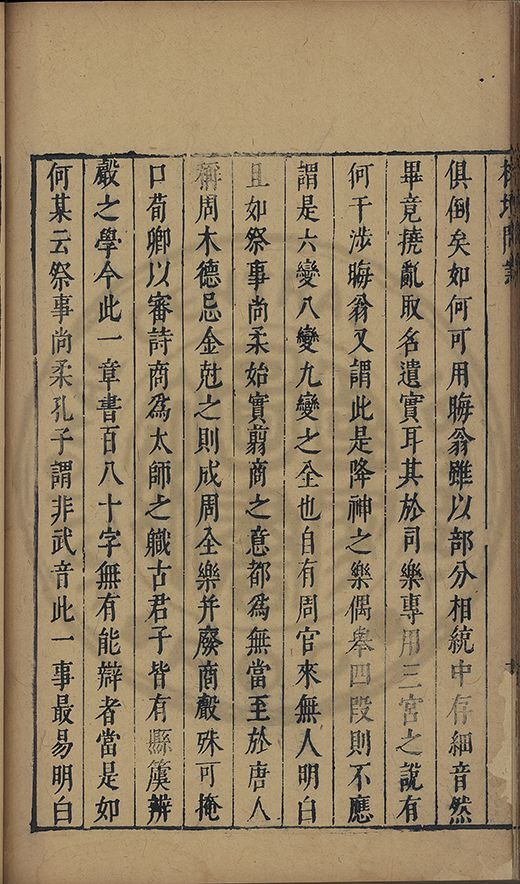 俱倒矣如何可用晦翁雖以部分相統中存細音然
畢竟撓亂取名遺實耳其於司樂專用三宮之說有
何干涉晦翁又謂此是降神之樂偶舉四段則不應
謂是六變八變九變之全也自有周官來無人明白
且如祭事尚柔始實翦商之意都為無當至於唐人
稱周木德忌金尅之則成周全樂并廢商聲殊可掩
口荀卿以審詩商為太師之軄古君子皆有縣簴辨
聲之學今此一章書百八十字無有能辯者當是如
何某云祭事尚柔孔子謂非武音此一事最易明白